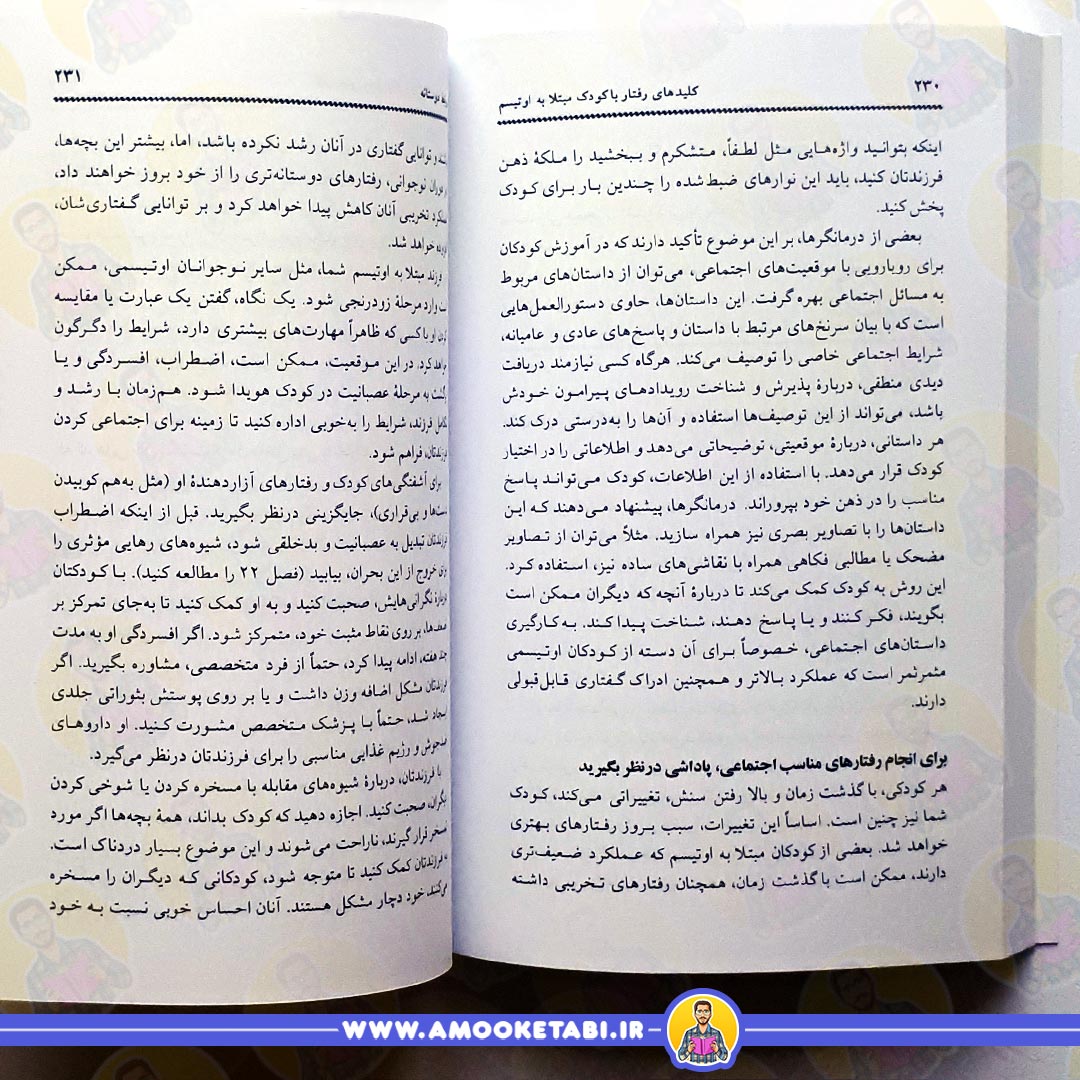 ۲۳۰
کلیدهای رفتار با کودک مبتلا به اوتیسم
اینکه بتوانید واژه‌هایی مثل لطفاً، متشکرم و ببخشید را ملکهٔ ذهن
فرزندتان کنید، باید این نوارهای ضبط‌شده را چندین بار برای کودک
پخش کنید.
بعضی از درمانگرها، بر این موضوع تأکید دارند که در آموزش کودکان
برای رویارویی با موقعیت‌های اجتماعی، می‌توان از داستان‌های مربوط
به مسائل اجتماعی بهره گرفت. این داستان‌ها، حاوی دستورالعمل‌هایی
است که با بیان سرنخ‌های مرتبط با داستان و پاسخ‌های عادی و عامیانه،
شرایط اجتماعی خاصی را توصیف می‌کند. هرگاه کسی نیازمند دریافت
دیدی منطقی، دربارهٔ پذیرش و شناخت رویدادهای پیرامون خودش
باشد، می‌تواند از این توصیف‌ها استفاده و آن‌ها را به‌درستی درک کند.
هر داستانی، دربارهٔ موقعیتی، توضیحاتی می‌دهد و اطلاعاتی را در اختیار
کودک قرار می‌دهد. با استفاده از این اطلاعات، کودک می‌تواند پاسخ
مناسب را در ذهن خود بپروراند. درمانگرها، پیشنهاد می‌دهند که این
داستان‌ها را با تصاویر بصری نیز همراه سازید. مثلاً می‌توان از تصاویر
مضحک یا مطالبی فکاهی همراه با نقاشی‌های ساده نیز، استفاده کرد.
این روش به کودک کمک می‌کند تا دربارهٔ آنچه که دیگران ممکن است
بگویند، فکر کنند و یا پاسخ دهند، شناخت پیدا کند. به‌کارگیری
داستان‌های اجتماعی، خصوصاً برای آن دسته از کودکان اوتیسمی
مثمرثمر است که عملکرد بالاتر و همچنین ادراک گفتاری قابل‌قبولی
دارند.
برای انجام رفتارهای مناسب اجتماعی، پاداشی درنظر بگیرید
هر کودکی، با گذشت زمان و بالا رفتن سنش، تغییراتی می‌کند، کودک
شما نیز چنین است. اساساً این تغییرات، سبب بروز رفتارهای بهتری
خواهد شد. بعضی از کودکان مبتلا به اوتیسم که عملکرد ضعیف‌تری
دارند، ممکن است با گذشت زمان، همچنان رفتارهای تخریبی داشته
۲۳۱
دوستانه
و توانایی گفتاری در آنان رشد نکرده باشد، اما، بیشتر این بچه‌ها،
نوجوانی، رفتارهای دوستانه‌تری را از خود بروز خواهند داد،
تخریبی آنان کاهش پیدا خواهد کرد و بر توانایی گفتاری‌شان،
خواهد شد.
مبتلا به اوتیسم شما، مثل سایر نوجوانان اوتیسمی، ممکن
وارد مرحلهٔ زودرنجی شود. یک نگاه، گفتن یک عبارت یا مقایسه
او با کسی که ظاهراً مهارت‌های بیشتری دارد، شرایط را دگرگون
کرد. در این موقعیت، ممکن است، اضطراب، افسردگی و یا
به مرحلهٔ عصبانیت در کودک هویدا شود. هم‌زمان با رشد و
فرزند، شرایط را به‌خوبی اداره کنید تا زمینه برای اجتماعی کردن
فرزندتان، فراهم شود.
برای آشفتگی‌های کودک و رفتارهای آزاردهندهٔ او (مثل به‌هم کوبیدن
و بی‌قراری)، جایگزینی درنظر بگیرید. قبل از اینکه اضطراب
فرزندتان تبدیل به عصبانیت و بدخلقی شود، شیوه‌های رهایی مؤثری را
برای خروج از این بحران، بیابید (فصل ۲۲ را مطالعه کنید). با کودکتان
دربارهٔ نگرانی‌هایش، صحبت کنید و به او کمک کنید تا به‌جای تمرکز بر
ضعف‌ها، بر روی نقاط مثبت خود، متمرکز شود. اگر افسردگی او به مدت
چند هفته، ادامه پیدا کرد، حتماً از فرد متخصصی، مشاوره بگیرید. اگر
فرزندتان مشکل اضافه وزن داشت و یا بر روی پوستش بثوراتی جلدی
ایجاد شد، حتماً با پزشک متخصص مشورت کنید. او داروهای
ضدجوش و رژیم غذایی مناسبی را برای فرزندتان درنظر می‌گیرد.
با فرزندتان، دربارهٔ شیوه‌های مقابله با مسخره کردن یا شوخی کردن
دیگران، صحبت کنید. اجازه دهید که کودک بداند، همهٔ بچه‌ها اگر مورد
تمسخر قرار گیرند، ناراحت می‌شوند و این موضوع بسیار دردناک است.
به فرزندتان کمک کنید تا متوجه شود، کودکانی که دیگران را مسخره
می‌کنند خود دچار مشکل هستند. آنان احساس خوبی نسبت به خود
WWW.AMOOKETABI.IR